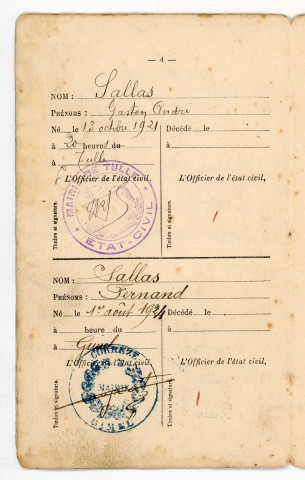 — 4 —
NOM : Sallas
PRÉNOMS : Gaston André
Né le 13 octobre 1921 Décédé le
à 20 heures du à
à Tulle
L'Officier de l'état civil, L'Officier de l'état civil,
Timbre et signature.
Timbre et signature.
MAIRIE DE TULLE
ETAT-CIVIL
NOM : Sallas
PRÉNOMS : Fernand
Né le 1er août 1924 Décédé le
à heure du à
à Gimel
L'Officier de l'état civil,
Timbre et signature.
Timbre et signature.
CORRÈZE
MAIRIE
GIMEL